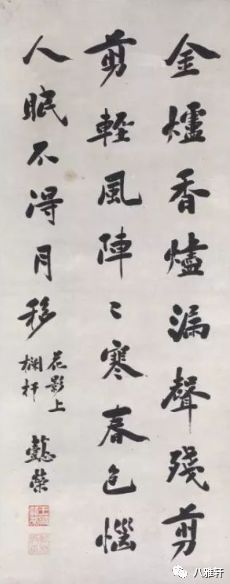 金爐香燼漏聲殘剪
剪輕風陣〻寒春色惱
人眠不得月移
花影上
欄杆
懿榮
八雅轩